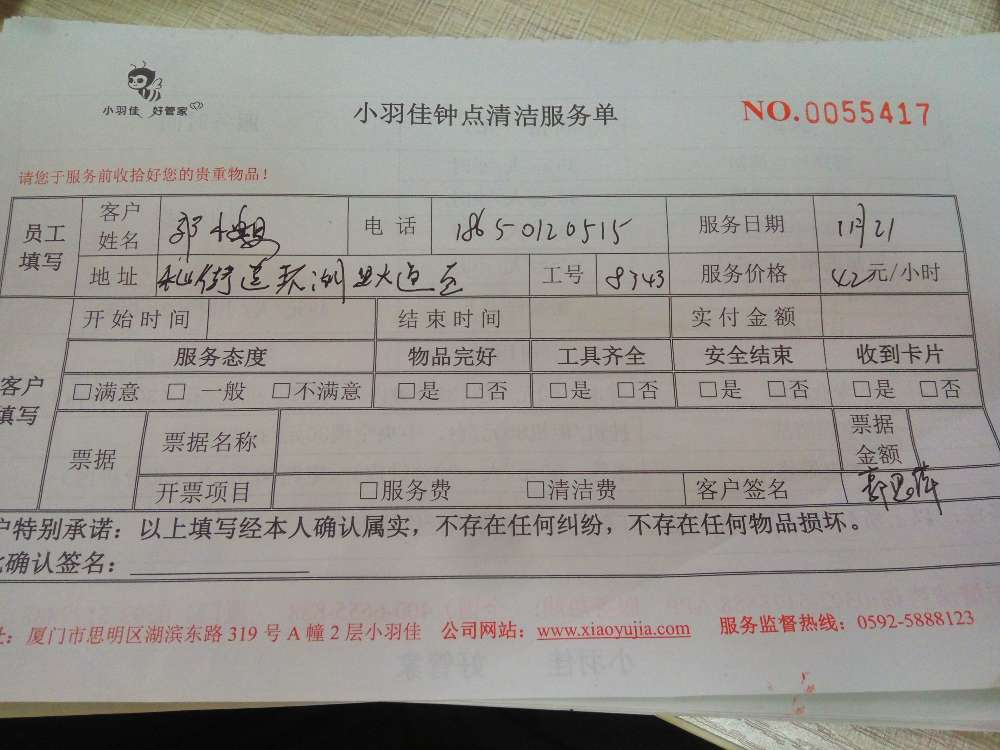 小羽佳 好管家
小羽佳钟点清洁服务单
NO.0055417
请您于服务前收拾好您的贵重物品！
员工填写 客户姓名 电话 18650120515 服务日期 11月21
地址 工号 8743 服务价格 42元/小时
客户填写 开始时间 结束时间 实付金额
服务态度 物品完好 工具齐全 安全结束 收到卡片
□满意 □一般 □不满意 □是 □否 □是 □否 □是 □否 □是 □否
票据 票据名称 票据金额
开票项目 □服务费 □清洁费 客户签名
户特别承诺：以上填写经本人确认属实，不存在任何纠纷，不存在任何物品损坏。
确认签名：
址：厦门市思明区湖滨东路 319 号 A 幢 2 层小羽佳 公司网站：www.xiaoyujia.com 服务监督热线：0592-5888123